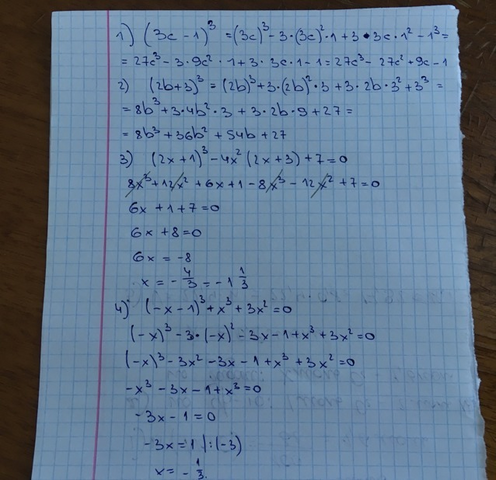 1) (3c - 1)³ = (3c)³ - 3·(3c)²·1 + 3·3c·1² - 1³ =
= 27c³ - 3·9c²·1 + 3·3c·1 - 1 = 27c³ - 27c² + 9c - 1
2) (2b+3)³ = (2b)³ + 3·(2b)²·3 + 3·2b·3² + 3³ =
= 8b³ + 3·4b²·3 + 3·2b·9 + 27 =
= 8b³ + 36b² + 54b + 27
3) (2x+1)³ - 4x²(2x+3) + 7 = 0
8x³ + 12x² + 6x + 1 - 8x³ - 12x² + 7 = 0
6x + 1 + 7 = 0
6x + 8 = 0
6x = -8
x = -4/3 = -1 1/3
4) (-x-1)³ + x³ + 3x² = 0
(-x)³ - 3·(-x)² - 3x - 1 + x³ + 3x² = 0
(-x)³ - 3x² - 3x - 1 + x³ + 3x² = 0
-x³ - 3x - 1 + x³ = 0
-3x - 1 = 0
-3x = 1 |:(-3)
x = -1/3